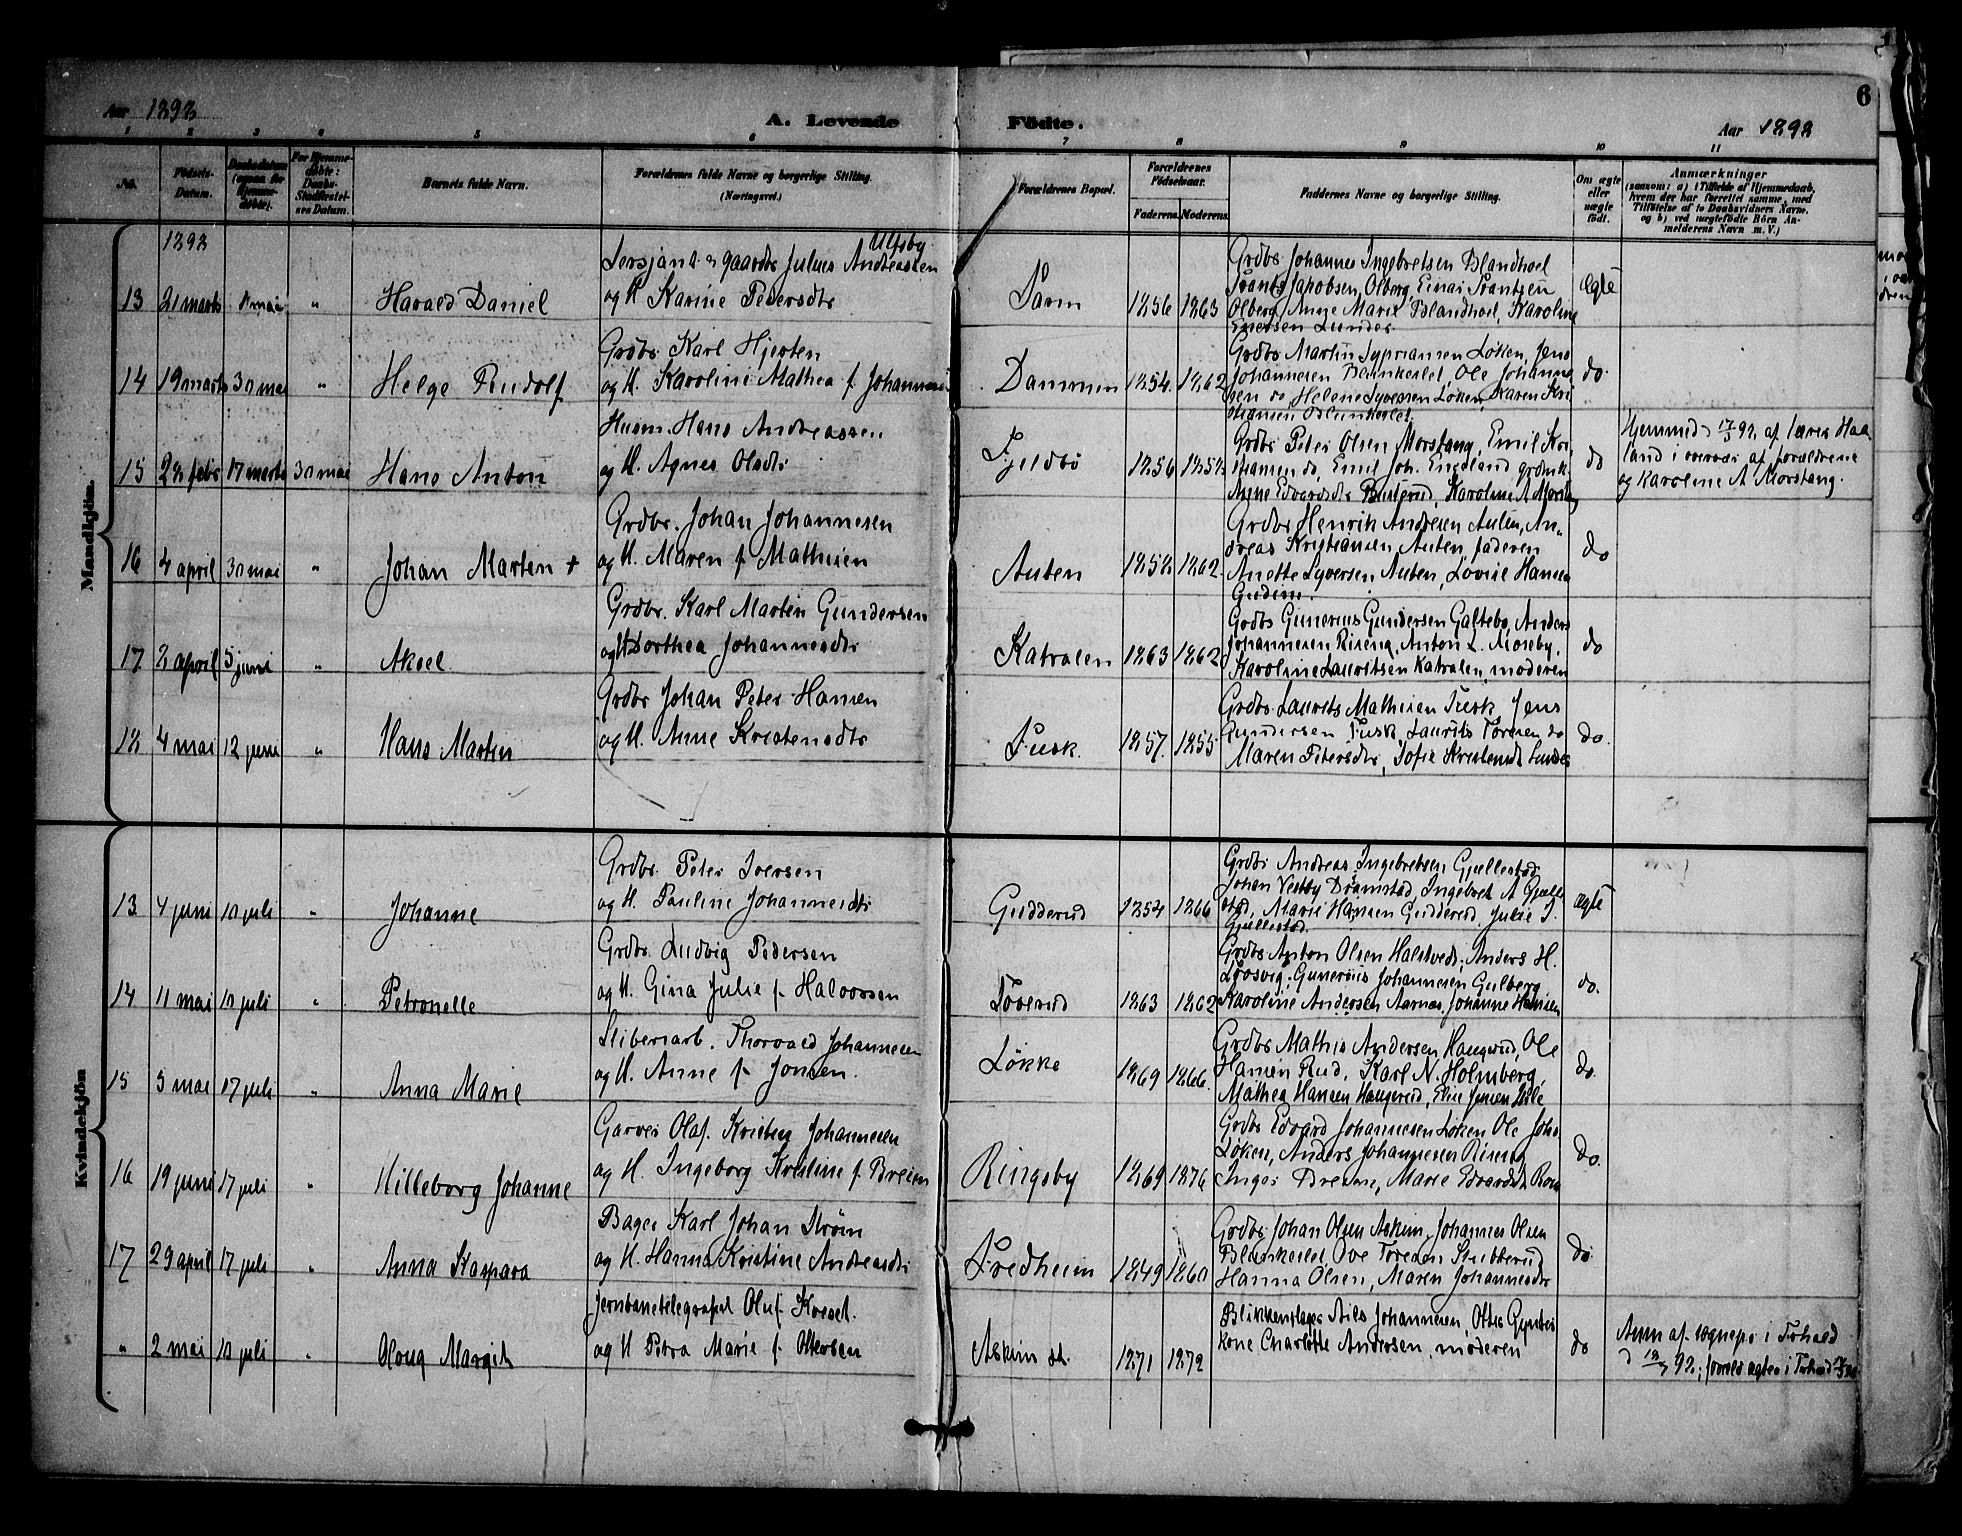 6
Aar 1892
A. Levende Fødte.
Aar 1892
1 2 3 4 5 6 7 8 9 10 11
No.
Fødsels-Datum.
Daabsdatum (ogsaa for Hjemmedøbte).
For Hjemmedøbte: Daabs-Stadfæstelses Datum.
Barnets fulde Navn.
Forældrenes fulde Navne og borgerlige Stilling.
(Næringsvei.)
Forældrenes Bopæl.
Forældrenes Fødselsaar.
Faderens. Moderens.
Faddernes Navne og borgerlige Stilling.
Om ægte eller uægte født.
Anmærkninger
(saasom: a) i Tilfælde af Hjemmedaab,
hvem der har forrettet samme, med
Tilføielse af to Daabsvidners Navne,
og b) ved uægtefødte Børn Anmelderens Navn m. V.)
Mandkjøn.
1892
13 21 marts 8 mai " Harald Daniel
Sersjant & gaardbr Julius Andreassen Ulfsby
og H. Karine Pedersdtr
Parm 1856 1863
Grdbr Johannes Ingebretsen Blandhoel
Frants Jakobsen Olberg, Einar Frantsen
Olberg, Anne Marie Blandhoel, Karoline
Enersen Lunder
Ægte
14 19 marts 30 mai " Helge Rudolf
Grdbr. Karl Hjorten
og H. Karoline Mathea f. Johannesen
Dammen 1854. 1862
Grdbr Martin Syprians​en Løken, Jens
Johannesen Blunkeslet, Ole Johanne
sen do Helene Syversen Løken, Karen Kri
stiansen Blunkeslet
do.
15 28 febr 17 marts 30 mai Hans Anton
Husm. Hans Andreassen
og H. Agnes Olsdtr
Fjeldbö 1856 1858
Grdbr Peter Olsen Morstang, Emil Kri
stiansen do, Emil Joh. Engeland grdmk.
Anne Edvardsdtr Buterud, Karoline A Morstang
do
Hjemmed. 17/3 92 af lærer Haa
land i overvær af forældrene
og Karoline A Morstang.
16 4 april 30 mai " Johan Martin +
Grdbr. Johan Johannesen
og H. Maren f. Mathisen
Auten 1858 1862.
Grdbr Henrik Andresen Auten, An-
dreas Kristiansen Auten, faderen
Anette Syversen Auten, Lovise Hansen
Gudim.
do
17 2 april 5 juni " Aksel
Grdbr. Karl Martin Gundersen
og H Dorthea Johannesdtr
Katralen 1863 1862
Grdbr Gunerius Gundersen Galtebo, Anders
Johannesen Riseng, Anton L. Moseby,
Karoline Lauritsen Katralen, moderen
do
18 4 mai 12 juni " Hans Martin
Grdbr Johan Peter Hansen
og H. Anne Kristensdtr
Fusk. 1857. 1855
Grdbr. Laurits Mathisen Fusk Jens
Gundersen Fusk, Laurits Toresen do
Maren Petersdtr, Sofie Kristensdt Lunder
do.
Kvindekjøn
13 4 juni 10 juli " Johanne
Grdbr. Peter Iversen
og H. Pauline Johannesdtr
Gudderud 1854 1866
Grdbr Andreas Ingebretsen Gjellestad
Johan Vestby Dramstad, Ingebret A Gjelle
stad, Marie Hansen Gudderud, Julie I.
Gjellestad.
ægte
14 11 mai 10 juli " Petronelle
Grdbr. Ludvig Pedersen
og H. Gina Julie f. Halvorsen
Toverud 1863 1862
Grdbr Anton Olsen Halstvedt, Anders H.
Gunerius Johannesen Gulberg
Karoline Andersen Aarnæs, Johanne Hansen
do.
15 3 mai 17 juli " Anna Marie
Sliberiarb. Thorvald Johannesen
og H. Anne f. Jonsen.
Løkke 1869 1866.
Grdbr Mathis Andersen Haugerud, Ole
Hansen Rud, Karl N. Holmberg,
Mathea Hansen Haugerud, Else Jensen
do.
16 19 juni 17 juli " Hilleborg Johanne
Garver Olaf Kristen Johannesen
og H. Ingeborg Kristine f. Breien
Ringsby 1869 1876
Grdbr Edvard Johannesen Løken Ole Joh.
Løken, Anders Johannesen Riseng
Inger Breien, Marie Edvardsdt
do.
17 29 april 17 juli " Anna Kaspara
Bager Karl Johan Strøm
og H. Hanna Kristine Andreasdtr
Fredheim 1849 1860
Grdbr Johan Olsen Askim, Johannes Olsen
Blunkeslet, Ove Toresen Stubberud
Hanna Olsen, Maren Johannesdtr
do.
" 2 mai 10 juli " Aloug Margit
Jernbanetelegrafist Oluf
og H Petra Marie f. Ottersen
Askim st. 1871 1872
Blikkenslager Nils Johannesen, Otter Gunder
kone Charlotte Andersen, moderen
do
Anm af sognepr i Trhald
d 18/7 92; foreld ægtev i Trhald